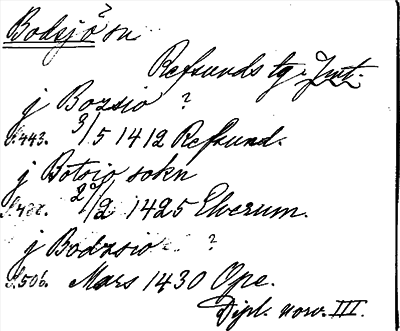 Bodsjö ? sn
Refsunds tg. Jmt.
j Bozsio ?
S. 443. 3/5 1412 Refsund.
j Botsio sokn
2/2 1425 Elverum.
j Bodzsio ?
S. 506. Mars 1430 Ope.
Dipl. norv. III.